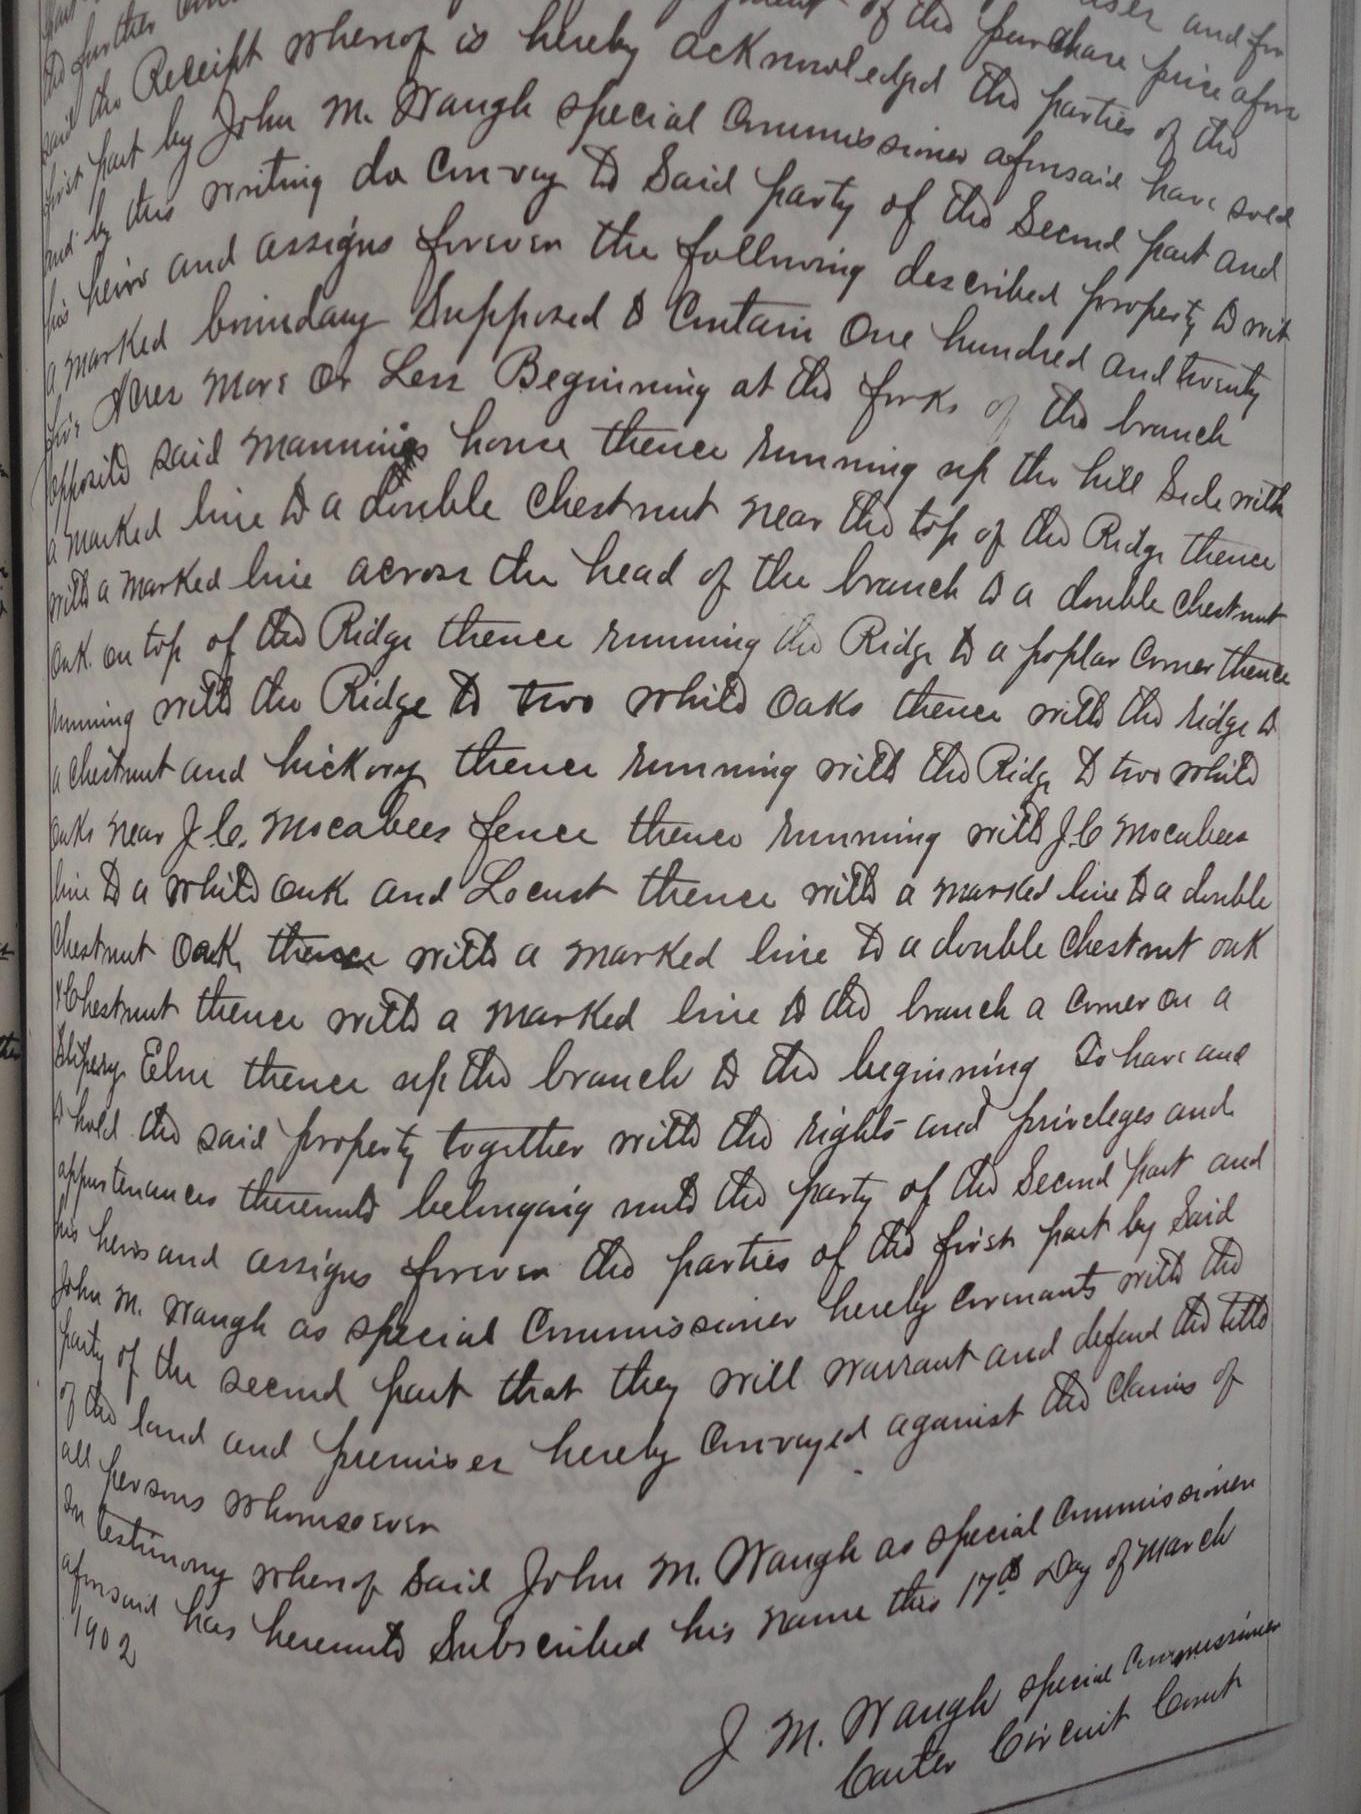 and for
the further of the purchase price afore
said the Receipt whereof is hereby acknowledged the parties of the
first part by John M. Waugh special Commissioner aforesaid have sold
and by this writing do Convey to Said party of the Second part and
his heirs and assigns forever the following described property to wit
a marked boundary Supposed to Contain One hundred and twenty
five Acres More Or Less Beginning at the forks of the branch
opposite said Mannings house thence running up the hill Side with
a marked line to a double Chestnut near the top of the Ridge thence
with a marked line across the head of the branch to a double chestnut
oak on top of the Ridge thence running the Ridge to a poplar Corner thence
running with the Ridge to two white oaks thence with the ridge to
a chestnut and hickory thence running with the Ridge to two white
oaks near J.C. Mocabees fence thence running with J.C Mocabees
line to a white oak and Locust thence with a marked line to a double
Chestnut Oak thence with a marked line to a double chestnut oak
& Chestnut thence with a marked line to the branch a corner on a
Slipery Elm thence up the branch to the beginning To have and
to hold the said property together with the rights and privileges and
appurtenances thereunto belonging unto the party of the Second part and
his heirs and assigns forever the parties of the first part by Said
John M. Waugh as special Commissioner hereby Covenants with the
party of the second part that they will warrant and defend the title
of the land and premises hereby Conveyed against the Claims of
all persons whomsoever
In testimony whereof Said John M. Waugh as special Commissioner
aforesaid has hereunto Subscribed his name this 17th Day of March
1902
J. M. Waugh special Commissioner
Carter Circuit Court